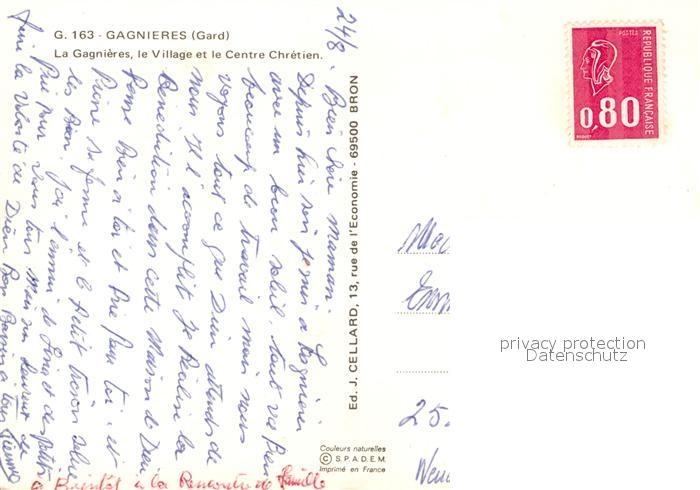 G. 163 - GAGNIERES (Gard)
La Gagnières, le Village et le Centre Chrétien.
24/8. Bien chère Maman
Depuis hier soir à Gagnières
avec un bien soleil, tout va bien
beaucoup de travail mais nous
voyons tout ce que Dieu attends de
nous Il l'accomplit je Réalise la
Bénédiction dans cette Maison de Dieu
Pense Bien à toi et Prie pour toi, et
Pierre se ferme et le Petit trésor
les Bien. J'ai de et des petits
Prie pour Vous tous
faire la Volonté de Dieu Bon Baiser à tous
a Bientôt à la Rencontre de famille
Ed. J. CELLARD, 13, rue de l'Economie - 69500 BRON
Couleurs naturelles
© S.P.A.D.E.M.
Imprimé en France
POSTES
REPUBLIQUE FRANÇAISE
0,80
25.
privacy protection
Datenschutz